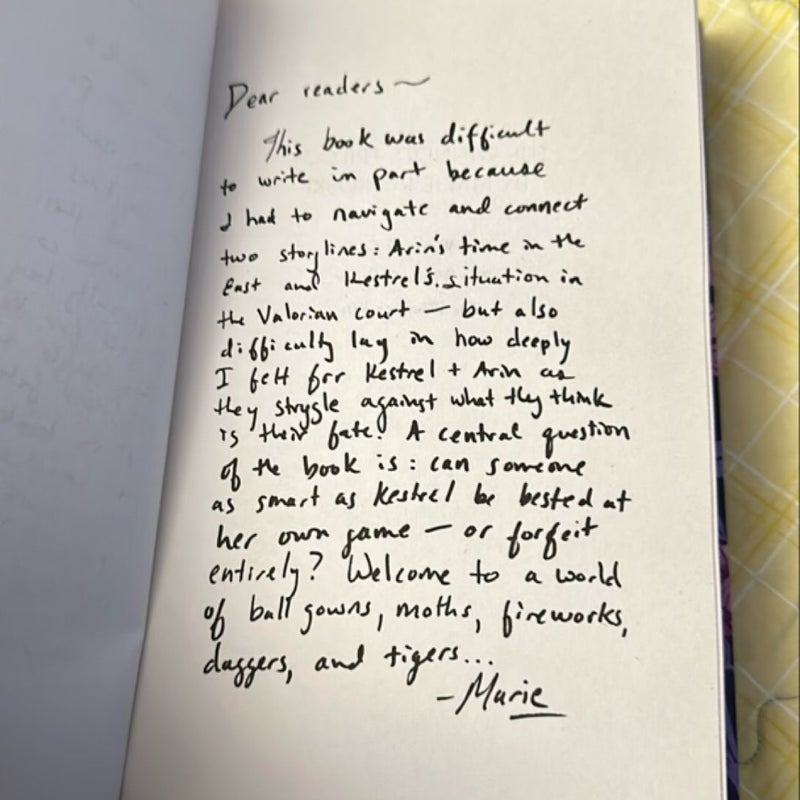 Dear readers ~
This book was difficult
to write in part because
I had to navigate and connect
two storylines: Arin's time in the
East and Kestrel's situation in
the Valorian court — but also
difficulty lay in how deeply
I felt for Kestrel + Arin as
they struggle against what they think
is their fate. A central question
of the book is: can someone
as smart as Kestrel be bested at
her own game — or forfeit
entirely? Welcome to a world
of ball gowns, moths, fireworks,
daggers, and tigers...
- Marie